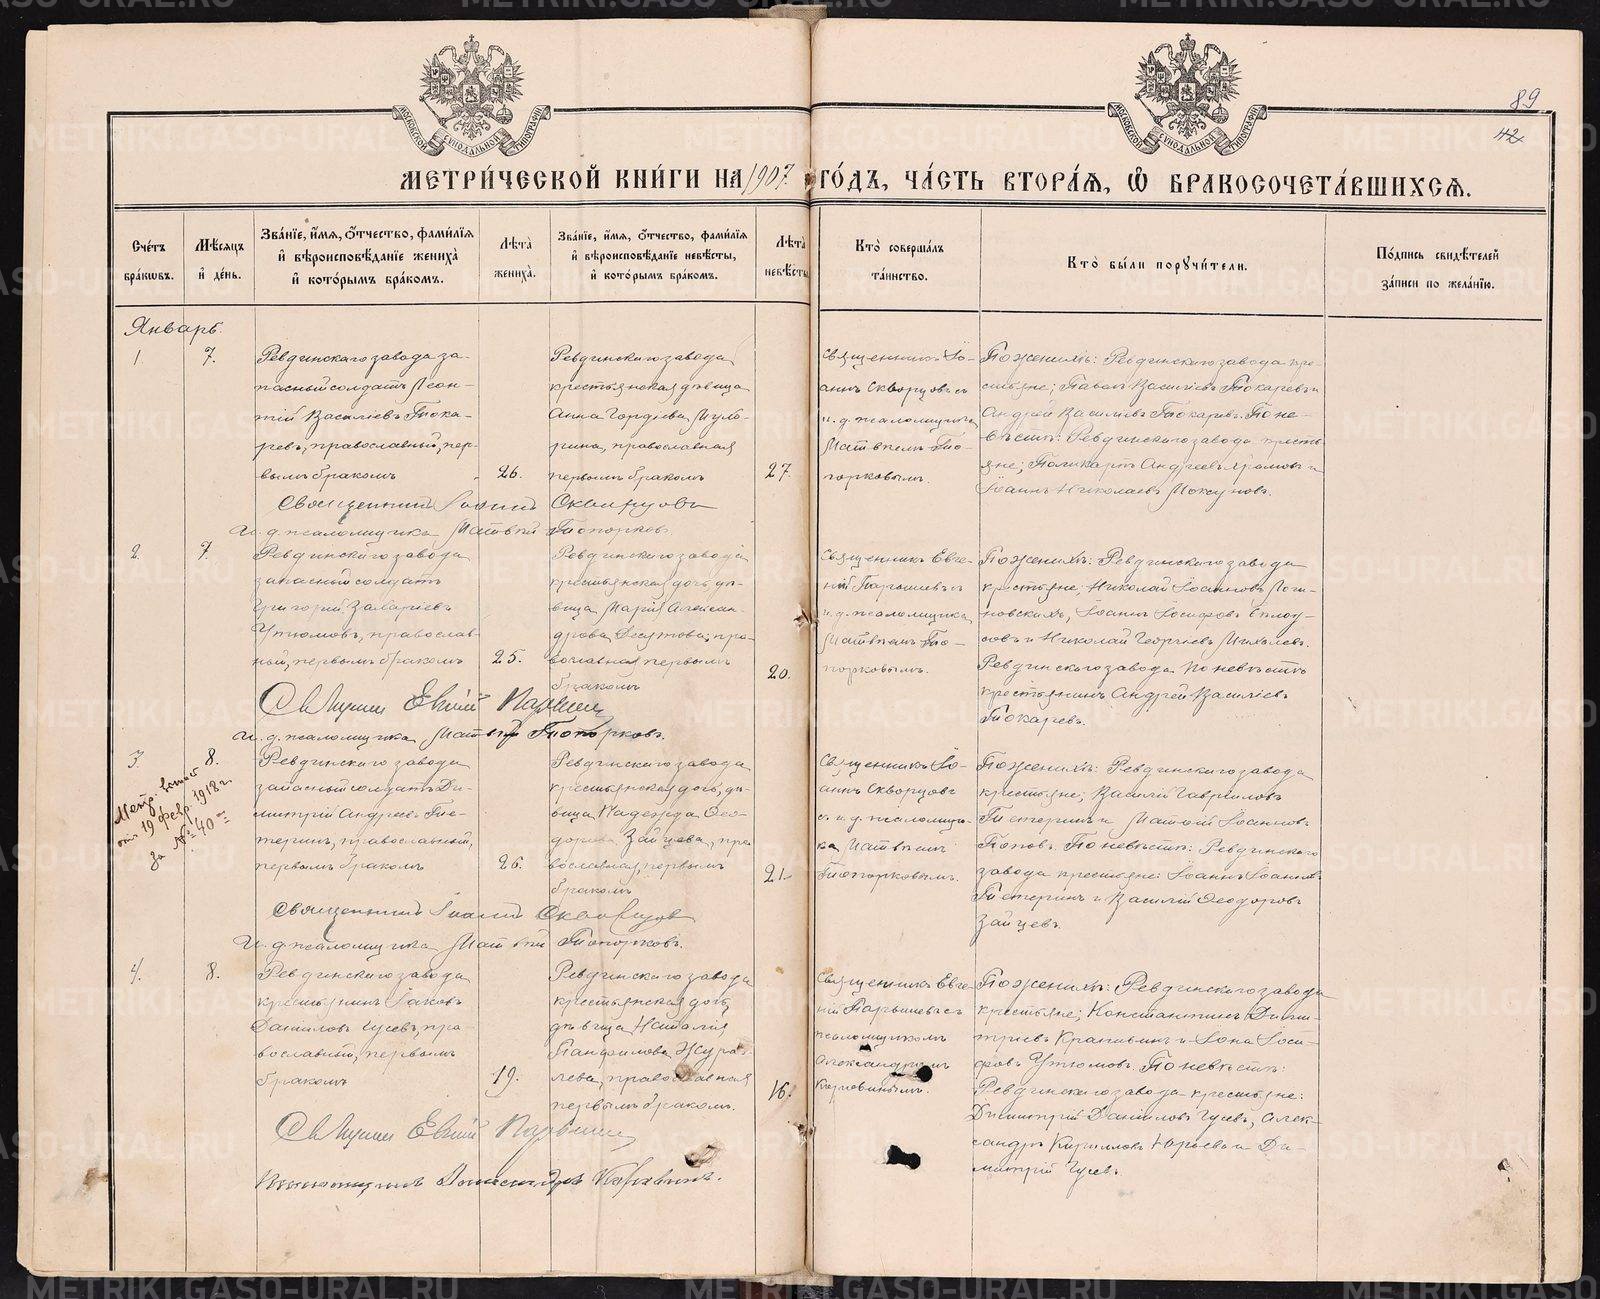 89
42
МОСКОВСКОЙ СѴНОДАЛЬНОЙ ТИПОГРАФІИ
МОСКОВСКОЙ СѴНОДАЛЬНОЙ ТИПОГРАФІИ
МЕТРИ́ЧЕСКОЙ КНИ́ГИ НА 1907 ГО́ДЪ, ЧА́СТЬ ВТОРА́Ѧ, Ѽ БРАКОСОЧЕТА́ВШИХСѦ.
Сче́тъ бра́кѡвъ.
Мѣ́сѧцъ и҆ де́нь.
Зва́нїе, и҆́мѧ, ѻ҆́тчество, фами́лїѧ и҆ вѣроисповѣ́данїе жениха̀ и҆ кото́рымъ бра́комъ.
Лѣ́та̀ жениха̀.
Зва́нїе, и҆́мѧ, ѻ҆́тчество, фами́лїѧ и҆ вѣроисповѣ́данїе невѣ́сты, и҆ кото́рымъ бра́комъ.
Лѣ́та̀ невѣ́сты
Кто̀ соверша́лъ та́инство.
Кто̀ бы́ли порꙋчи́тели.
По́дпись свидѣ́телей за́писи по жела́нїю.
Январь.
1.
7.
Ревдинскаго завода за-
пасный солдатъ Леон-
тій Василіевъ Тока-
ревъ, православный, пер-
вымъ бракомъ
26.
Ревдинскаго завода
крестьянская дѣвица
Анна Гордіева
православная
первымъ бракомъ
27.
Священникъ Іо-
аннъ Скворцовъ съ
и. д. псаломщика
Матвѣемъ То-
порковымъ.
По женихѣ: Ревдинскаго завода кре-
стьяне; Павелъ Василіевъ Токаревъ и
Андрей Василіевъ Токаревъ. По не-
вѣстѣ: Ревдинскаго завода кресть-
яне; Поликарпъ Андреевъ и
Іоаннъ Николаевъ
Священникъ Іоаннъ Скворцовъ
И. д. псаломщика Матвѣй Топорковъ
2.
7.
Ревдинскаго завода
запасный солдатъ
Григорій Захаріевъ
Утюмовъ, православ-
ный, первымъ бракомъ
25.
Ревдинскаго завода
крестьянская дочь, дѣ-
вица Марія Алексан-
дрова Десятова, пра-
вославная первымъ
бракомъ
20.
Священникъ Евге-
ній Парышевъ съ
и. д. псаломщика
Матвѣемъ То-
порковымъ.
По женихѣ: Ревдинскаго завода
крестьяне; Николай Іоанновъ Логи-
новскихъ, Іоаннъ Іосифовъ
и Николай Георгіевъ
Ревдинскаго завода. По невѣстѣ
крестьянинъ Андрей Василіевъ
Токаревъ.
Священникъ Евгеній Парышевъ
И. д. псаломщика Матвѣй Топорковъ.
3.
8.
от 19 февр. 1918 г.
за № 40
Ревдинскаго завода
запасный солдатъ Ди-
митрій Андреевъ Те-
теринъ, православный,
первымъ бракомъ
26.
Ревдинскаго завода
крестьянская дочь, дѣ-
вица Надежда Ѳео-
дорова Зайцева, пра-
вославная, первымъ
бракомъ
21.
Священникъ Іо-
аннъ Скворцовъ
съ и. д. псаломщи-
ка Матвѣемъ
Топорковымъ.
По женихѣ: Ревдинскаго завода
крестьяне; Василій Гавріиловъ
Тетеринъ и Матѳій Іоанновъ
Поповъ. По невѣстѣ: Ревдинскаго
завода крестьяне: Іоаннъ Іоанновъ
Тетеринъ и Василій Ѳеодоровъ
Зайцевъ.
Священникъ Іоаннъ Скворцовъ
И. д. псаломщика Матвѣй Топорковъ.
4.
8.
Ревдинскаго завода
крестьянинъ Іаковъ
Даніиловъ Гусевъ, пра-
вославный, первымъ
бракомъ
19.
Ревдинскаго завода
крестьянская дочь,
дѣвица Наталія
Панфилова Журав-
лева, православная
первымъ бракомъ.
16.
Священникъ Евге-
ній Парышевъ съ
псаломщикомъ
Александромъ
По женихѣ: Ревдинскаго завода
крестьяне; Константинъ Дими-
тріевъ Крапивинъ и Іона Іоси-
фовъ Утюмовъ. По невѣстѣ:
Ревдинскаго завода крестьяне:
Димитрій Даніиловъ Гусевъ, Алек-
сандръ Кирилловъ Юрьевъ и Ди-
митрій Гусевъ.
Священникъ Евгеній Парышевъ
Псаломщикъ Александръ
METRIKI.GASO-URAL.RU